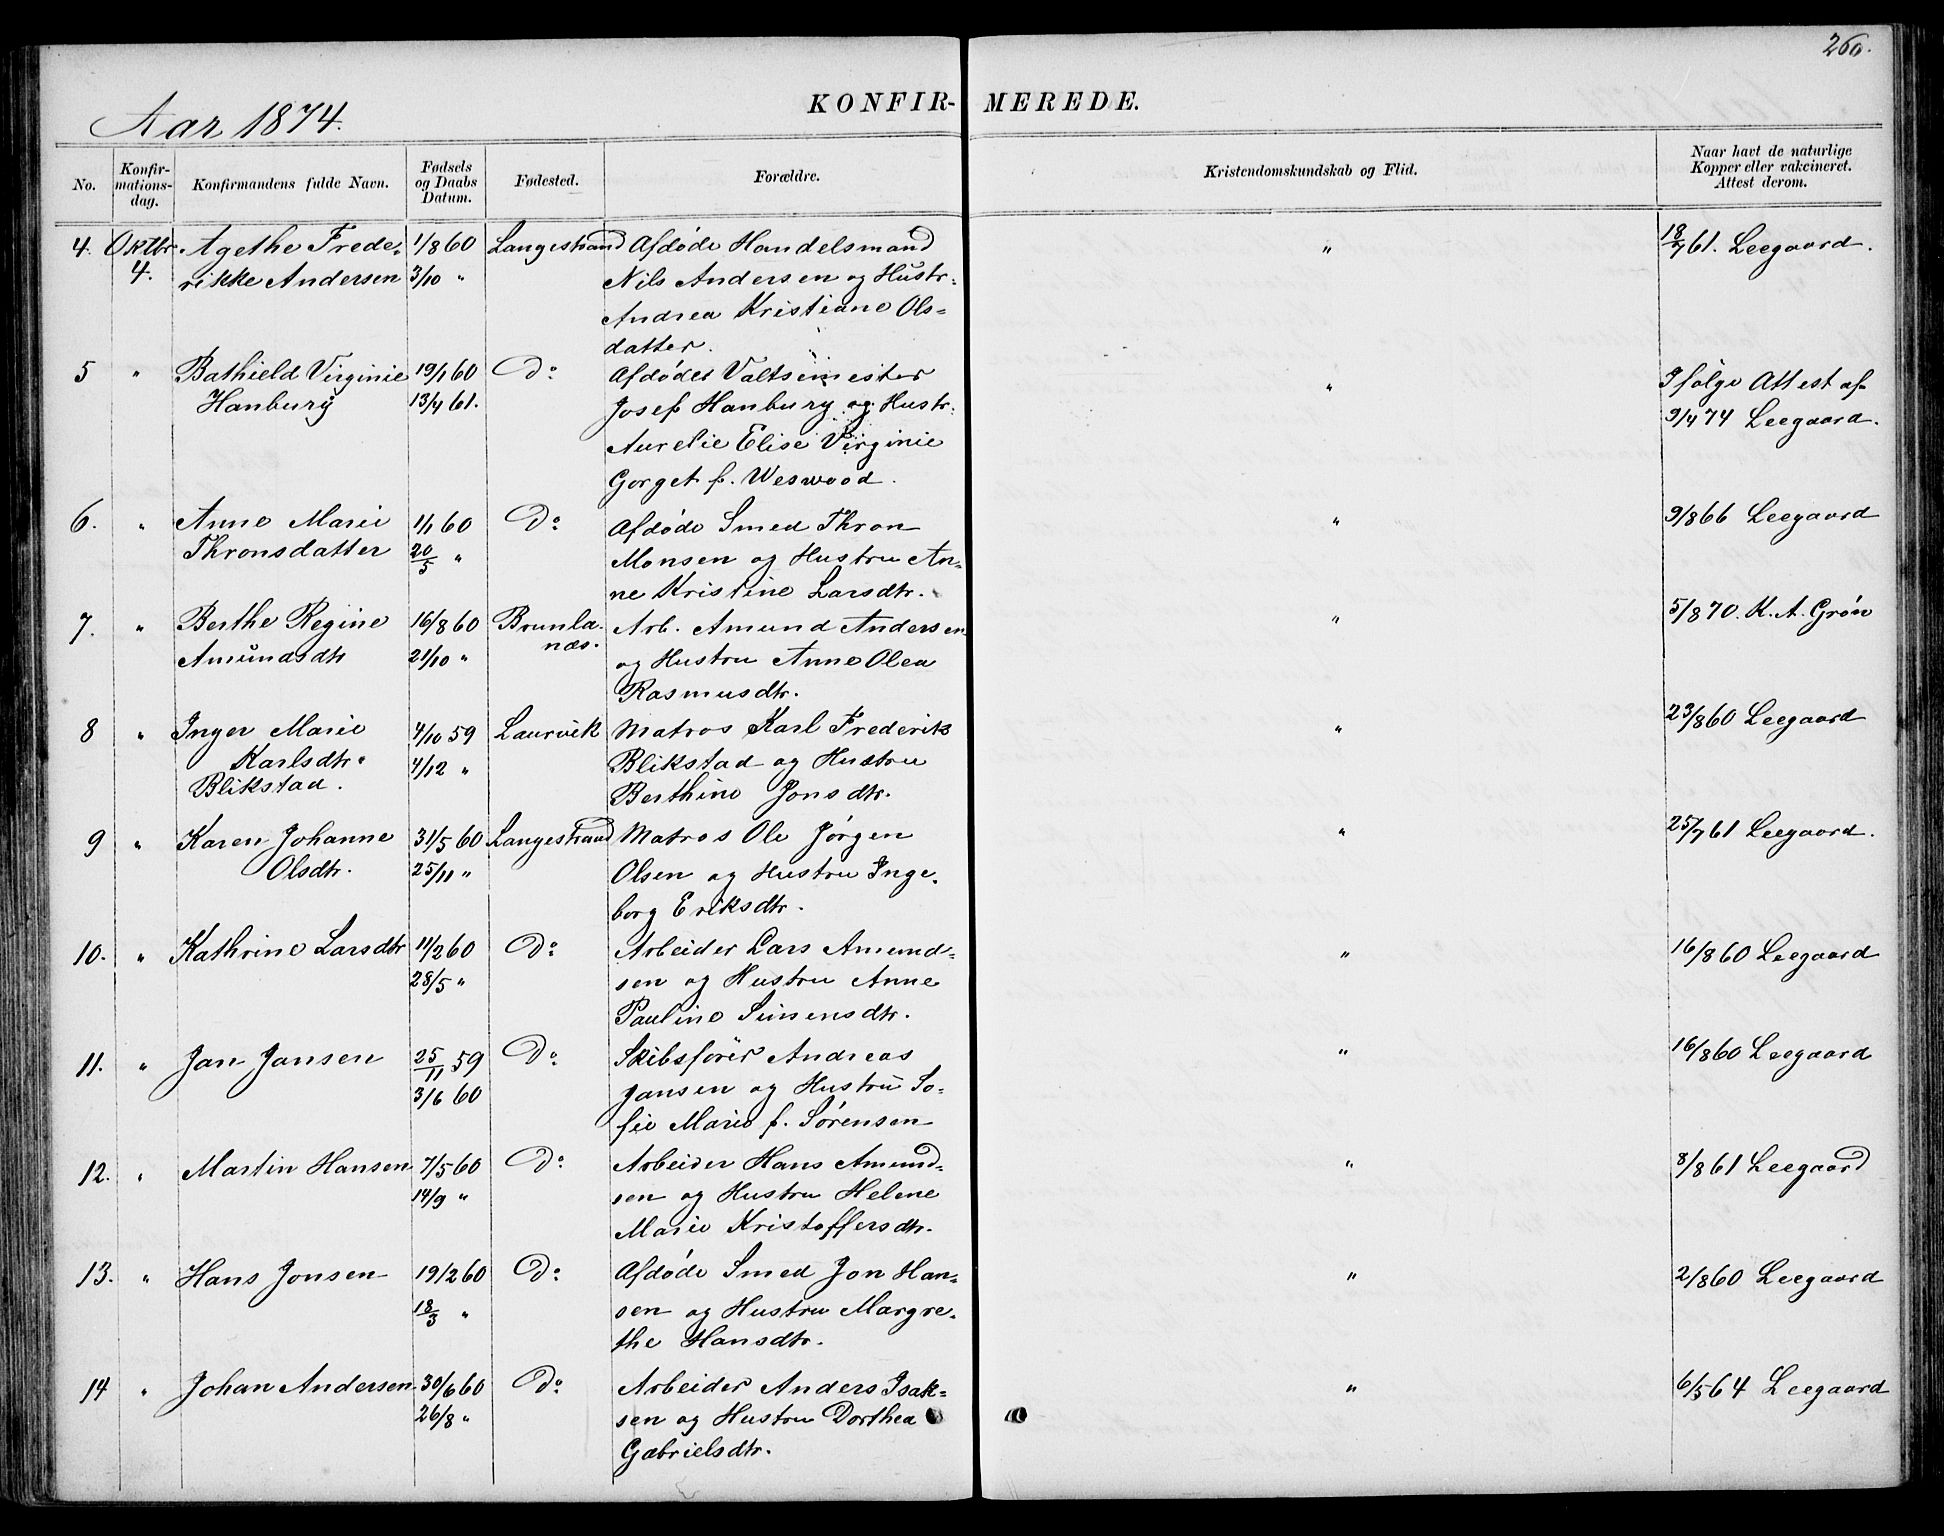 260.
Aar 1874.
KONFIR-MEREDE.
No.
Konfir-
mations-
dag.
Konfirmandens fulde Navn.
Fødsels
og Daabs
Datum.
Fødested.
Forældre.
Kristendomskundskab og Flid.
Naar havt de naturlige
Kopper eller vakcineret.
Attest derom.
4. Oktbr Agethe Frede- 1/8 60 Langestrand Afdøde Handelsmand " 18/7 61. Leegaard.
4. rikke Andersen 3/10 " Nils Andersen og Hustr:
Andrea Kristiane Ols-
datter.
5 " Bathield Virginie 19/1 60 Do Afdødes Valtsemester " Ifølge Attest af
Hanbury 13/4 61. Josef Hanbury og Hustr: 9/4 74 Leegaard.
Aurelie Elise Virginie
Gorget f. Weswood.
6. " Anne Marie 1/1 60 Do Afdøde Smed Thron " 9/8 66 Leegaard
Thronsdatter 20/5 " Monsen og Hustru An-
ne Kristine Larsdtr.
7. " Berthe Regine 16/8 60 Brunla- Arb. Amund Andersen " 5/8 70. K. A. Grön
Amundsdtr 21/10 " næs. og Hustru Anne Olea
Rasmusdtr.
8 " Inger Marie 4/10 59 Laurvik Matros Karl Frederik " 23/8 60 Leegaard
Karlsdtr. 4/12 " Blikstad og Hustru
Blikstad. Berthine Jonsdtr.
9 " Karen Johanne 31/5 60 Langestrand Matros Ole Jørgen " 25/7 61 Leegaard.
Olsdtr. 25/11 " Olsen og Hustru Inge-
borg Eriksdtr.
10. " Kathrine Larsdtr 11/2 60 Do Arbeider Lars Amund- " 16/8 60 Leegaard
28/5 " sen og Hustru Anne
Pauline Simensdtr.
11. " Jan Jansen 25/11 59 Do Skibsfører Andreas " 16/8 60 Leegaard
3/6 60 Jansen og Hustru So-
fie Marie f. Sørensen
12. " Martin Hansen 7/5 60 Do Arbeider Hans Amund- " 8/8 61 Leegaard
14/9 " sen og Hustru Helene
Marie Kristoffersdtr.
13. " Hans Jonsen 19/2 60 Do Afdøde Smed Jon Han- " 2/8 60 Leegaard
18/3 " sen og Hustru Margre-
the Hansdtr.
14 " Johan Andersen 30/6 60 Do Arbeider Anders Isak- " 6/5 64 Leegaard
26/8 " sen og Hustru Dorthea
Gabrielsdtr.